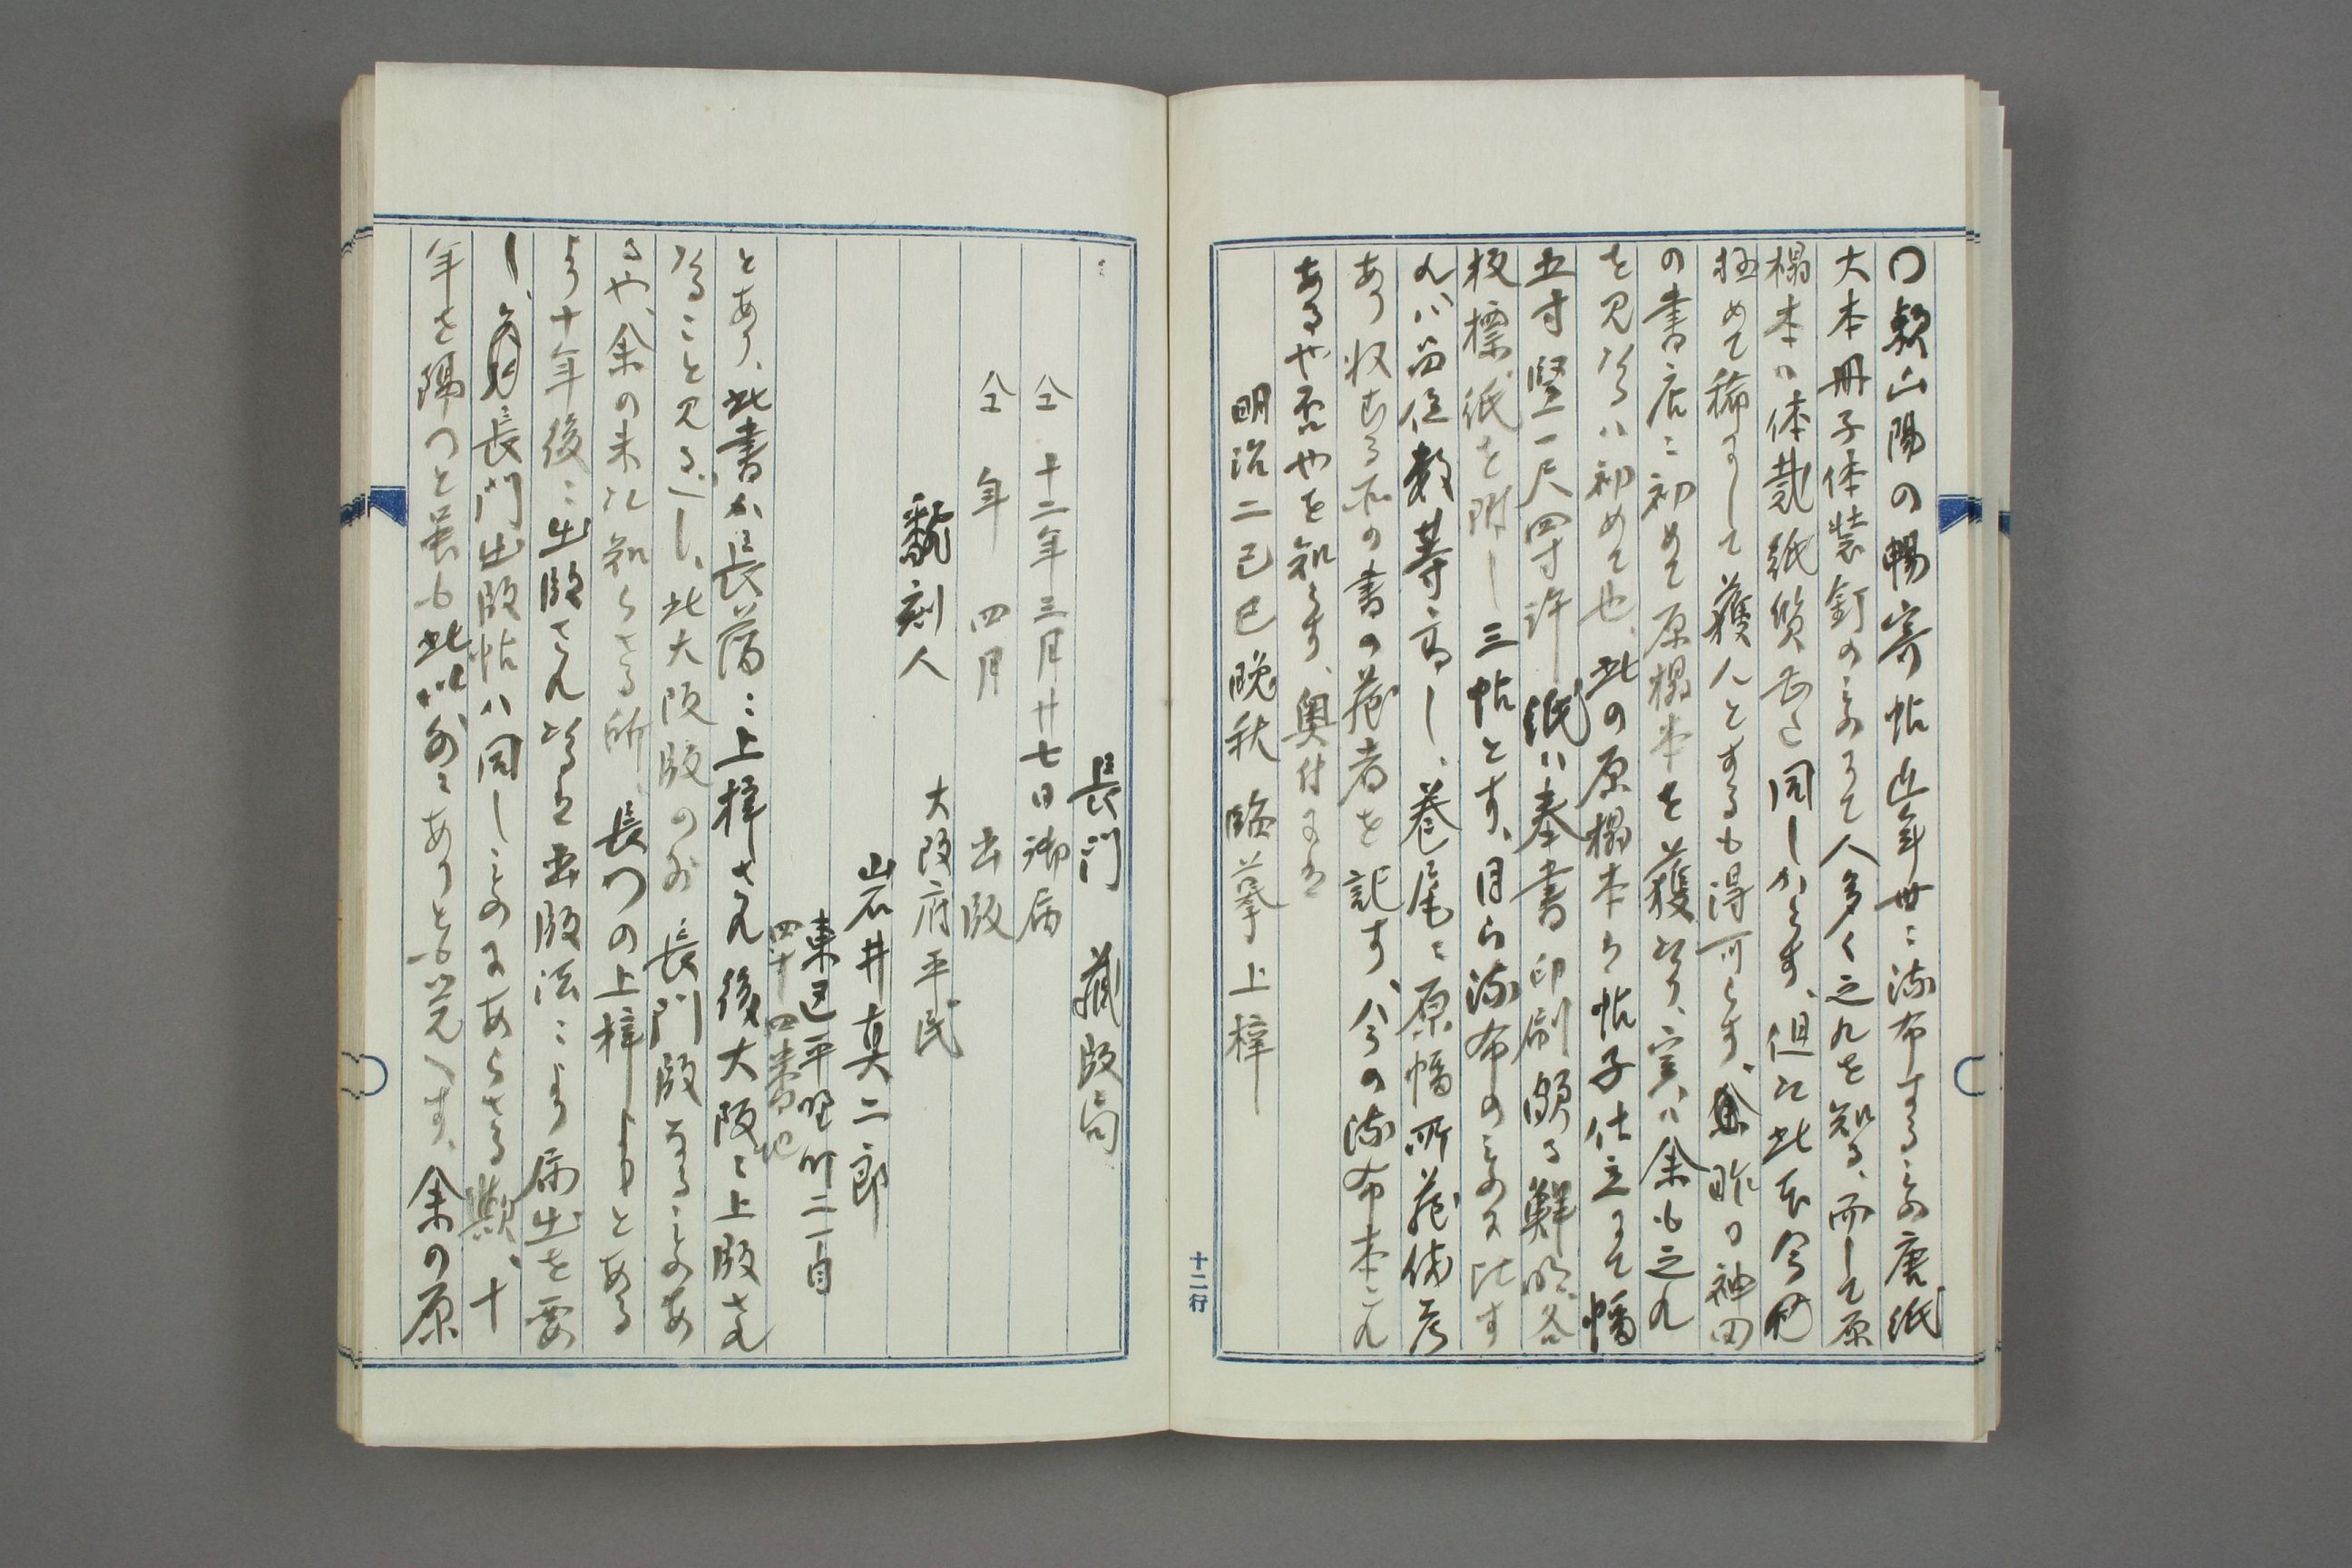 〇頼山陽の暢寄帖近年世ニ流布するもの唐紙
大本冊子体装釘のものにて人多く之れを知る、而して原
榻本の体裁紙質ハ之と同しからす、但此本今
極めて稀にして獲んとするも得可らす、余昨日神田
の書店ニ初めて原榻本を獲たり、実ハ余も之れ
を見たるハ初めて也、此の原榻本ハ帖子仕立にて幅
五寸竪一尺四寸許紙ハ奉書印刷頗る鮮明、各
板標紙を附し三帖とす、自ら流布のものに比す
れハ品位数等高し、巻尾ニ原幅所蔵備考
あり収むる所の書の蔵者を記す、今の流布本これ
あるや否やを知らす、奥付に曰
明治二己巳晩秋臨摹上梓
十二行
長門　蔵版局
仝十二年三月廿七日御届
仝　年　四月　出版
飜刻人　大阪府平民
岩井真二郎
東区平野町二丁目
四十四番地
とあり、此書か長藩ニ上梓され後大阪ニ上版され
たること見るべし、此大阪版の外長門版なるものあ
るや、余の未た知らさる所、長門の上梓しよりとある
より十年後ニ出版され
年を隔つと雖も此外ニありとも覚へす、余の原